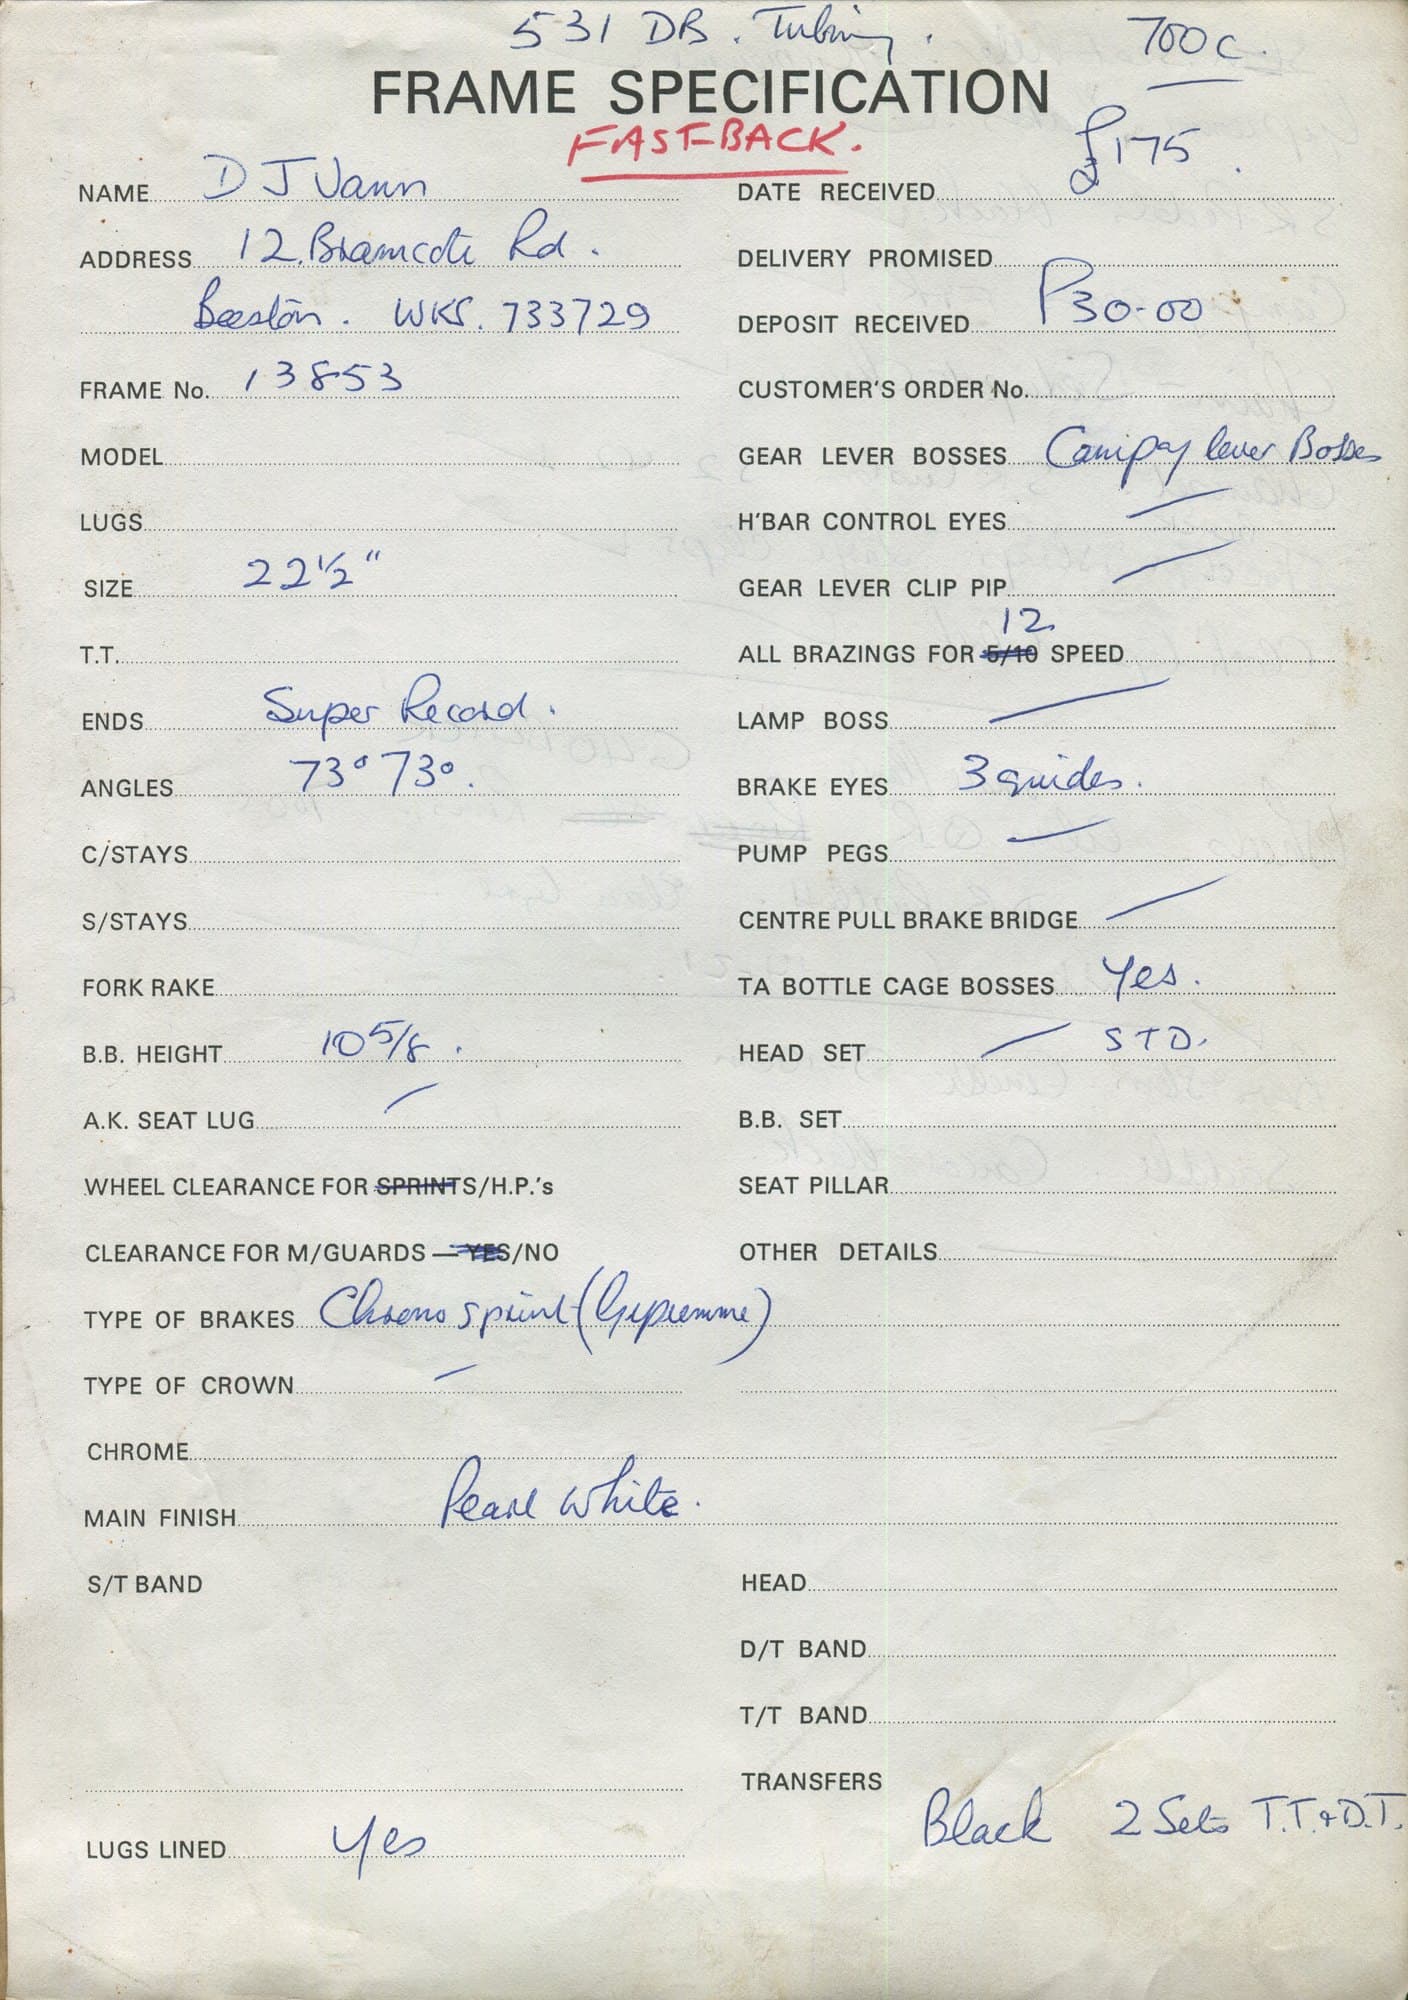 531 DB. Tubing. 700c.
FRAME SPECIFICATION
FAST-BACK. £175.
NAME D J Vann DATE RECEIVED
ADDRESS 12. Bramcote Rd. DELIVERY PROMISED
Beeston. WKS. 733729 DEPOSIT RECEIVED P30-00
FRAME No. 13853 CUSTOMER'S ORDER No.
MODEL GEAR LEVER BOSSES Campag lever Bosses
LUGS H'BAR CONTROL EYES —
SIZE 22½" GEAR LEVER CLIP PIP —
12
T.T. ALL BRAZINGS FOR 5/10 SPEED
ENDS Super Record. LAMP BOSS —
ANGLES 73° 73°. BRAKE EYES 3 guides.
C/STAYS PUMP PEGS —
S/STAYS CENTRE PULL BRAKE BRIDGE —
FORK RAKE TA BOTTLE CAGE BOSSES Yes.
B.B. HEIGHT 10 5/8. HEAD SET — STD.
A.K. SEAT LUG — B.B. SET
WHEEL CLEARANCE FOR SPRINTS/H.P.'s SEAT PILLAR
CLEARANCE FOR M/GUARDS — YES/NO OTHER DETAILS
TYPE OF BRAKES Chrono sprint (Gipiemme)
TYPE OF CROWN —
CHROME
MAIN FINISH Pearl White.
S/T BAND HEAD
D/T BAND
T/T BAND
TRANSFERS
Black 2 Sets T.T.+D.T.
LUGS LINED Yes